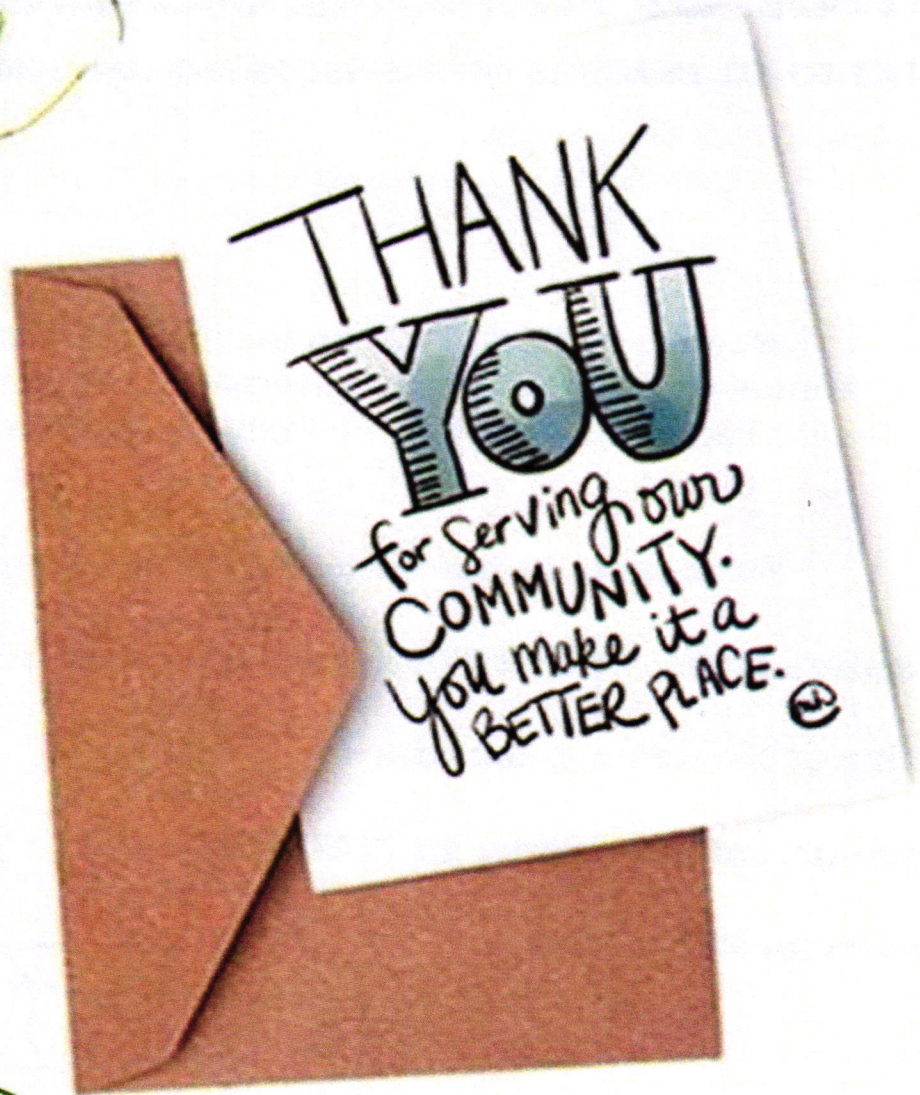 THANK
YOU
for serving our
COMMUNITY.
you make it a
BETTER PLACE.